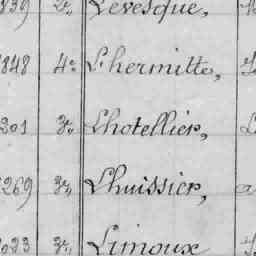 839 2e, Levesque,
848 4e Lhermitte,
201 3e, Lhotellier,
269 3e, Lhuissier, a
023 3e, Limoux